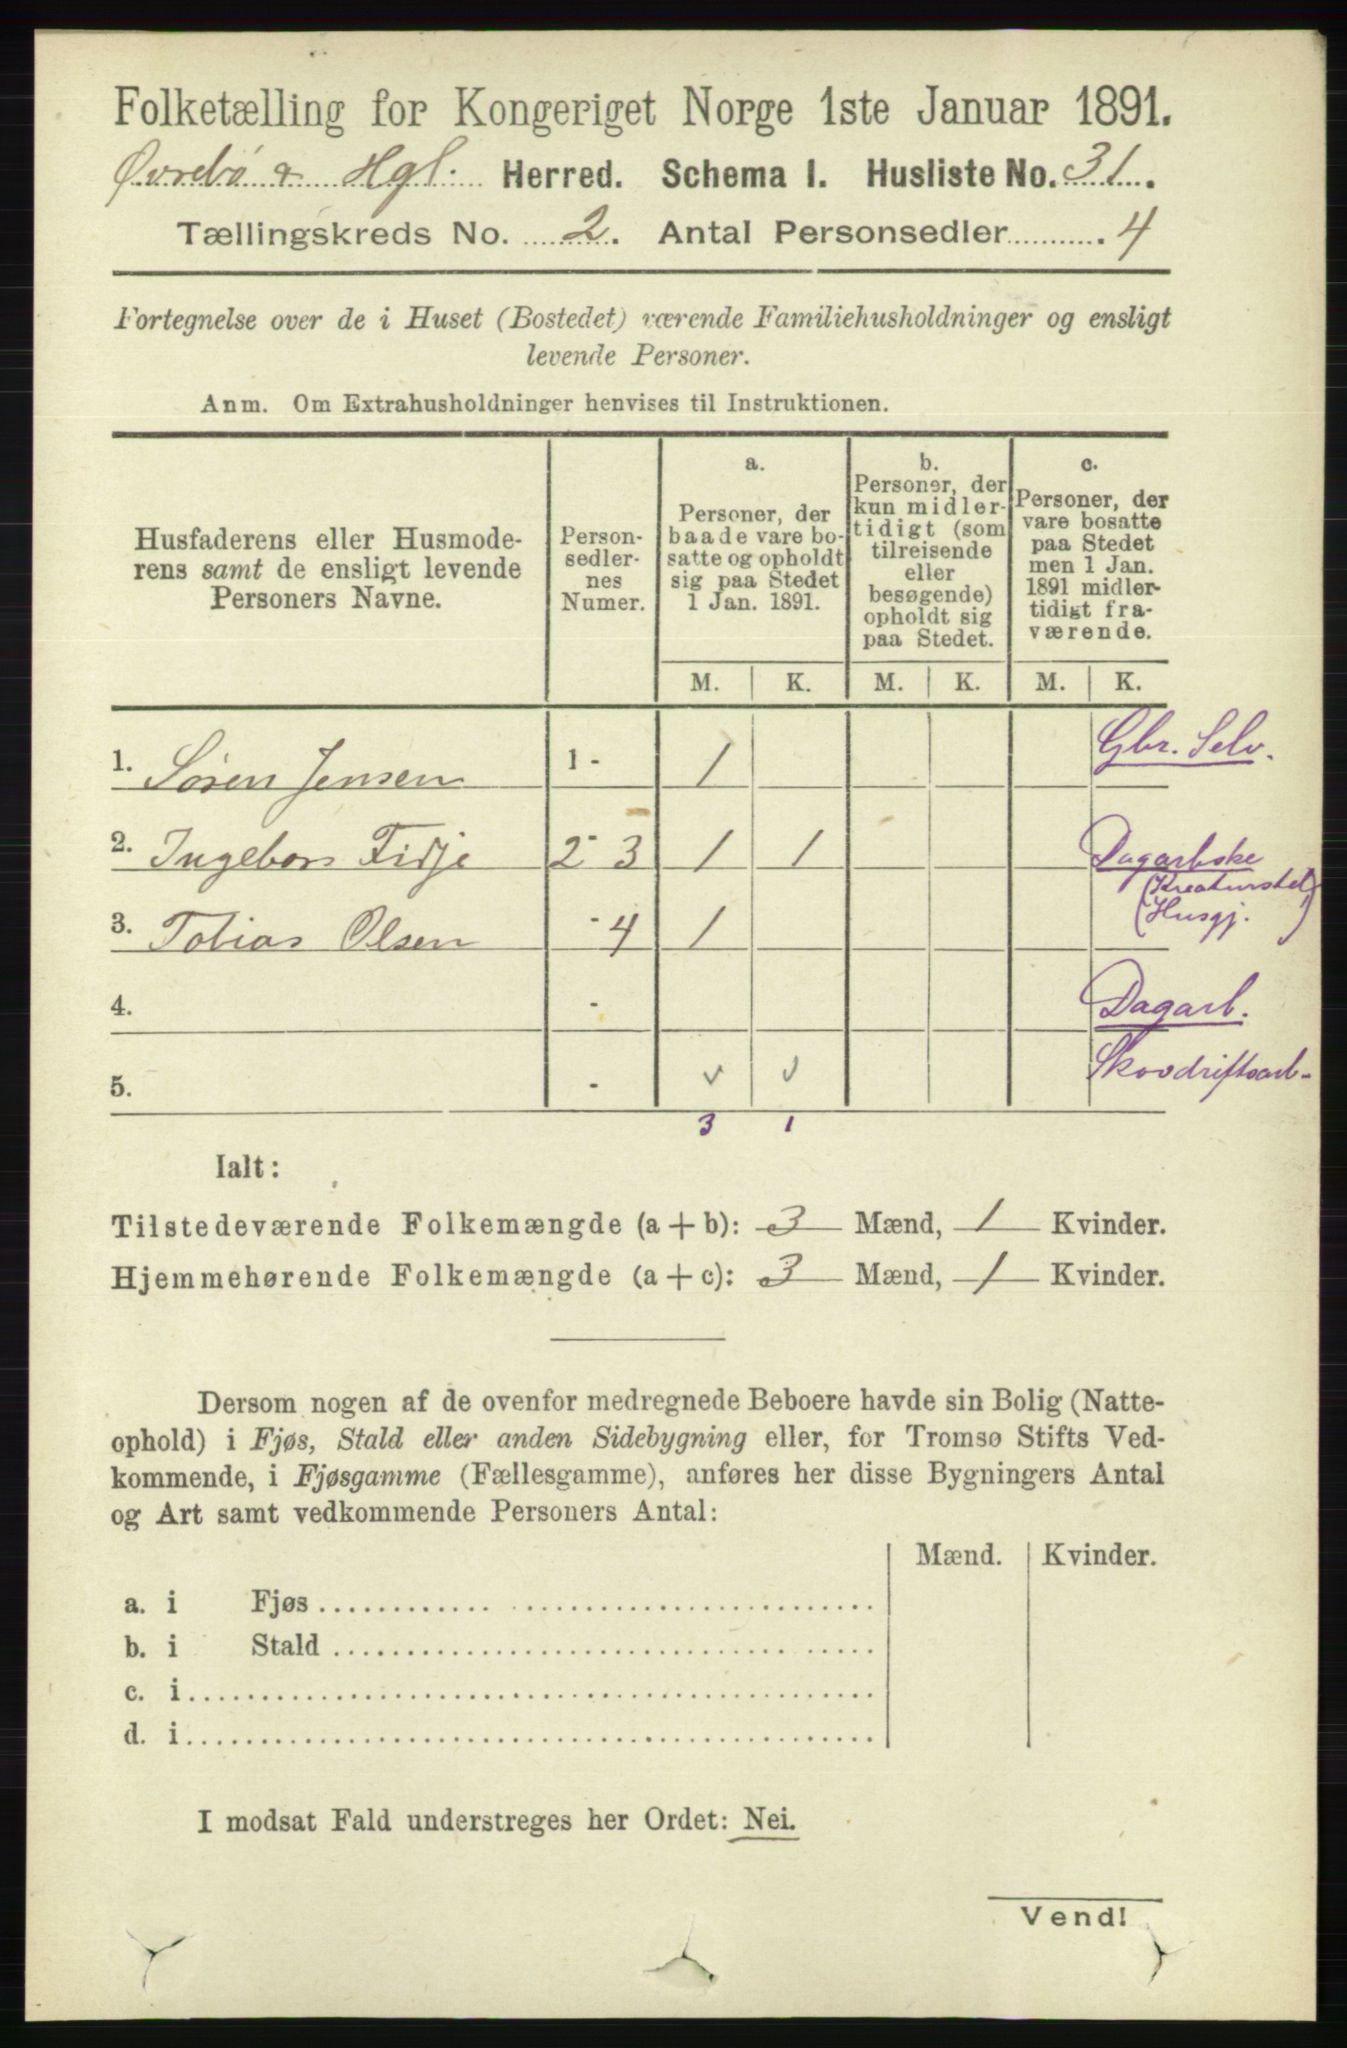 Folketælling for Kongeriget Norge 1ste Januar 1891.
Øvrebö & Hgl. Herred. Schema I. Husliste No. 31.
Tællingskreds No. 2. Antal Personsedler 4
Fortegnelse over de i Huset (Bostedet) værende Familiehusholdninger og ensligt
levende Personer.
Anm. Om Extrahusholdninger henvises til Instruktionen.
Husfaderens eller Husmode-
rens samt de ensligt levende
Personers Navne.
Person-
sedler-
nes
Numer.
a.
Personer, der
baade vare bo-
satte og opholdt
sig paa Stedet
1 Jan. 1891.
b.
Personer, der
kun midler-
tidigt (som
tilreisende
eller
besøgende)
opholdt sig
paa Stedet.
c.
Personer, der
vare bosatte
paa Stedet
men 1 Jan.
1891 midler-
tidigt fra-
værende.
M. K. M. K. M. K.
1. Sören Jensen 1 - 1 Gbr. Selv.
2. Ingebors Fidje 2 - 3 1 1 Dagarbske
(Kreaturstel)
(Husgj.)
3. Tobias Olsen - 4 1
4. - Dagarb.
5. - Skovdriftsarb.
3 1
Ialt:
Tilstedeværende Folkemængde (a + b): 3 Mænd, 1 Kvinder.
Hjemmehørende Folkemængde (a + c): 3 Mænd, 1 Kvinder.
Dersom nogen af de ovenfor medregnede Beboere havde sin Bolig (Natte-
ophold) i Fjøs, Stald eller anden Sidebygning eller, for Tromsø Stifts Ved-
kommende, i Fjøsgamme (Fællesgamme), anføres her disse Bygningers Antal
og Art samt vedkommende Personers Antal:
Mænd. Kvinder.
a. i Fjøs
b. i Stald
c. i
d. i
I modsat Fald understreges her Ordet: Nei.
Vend!